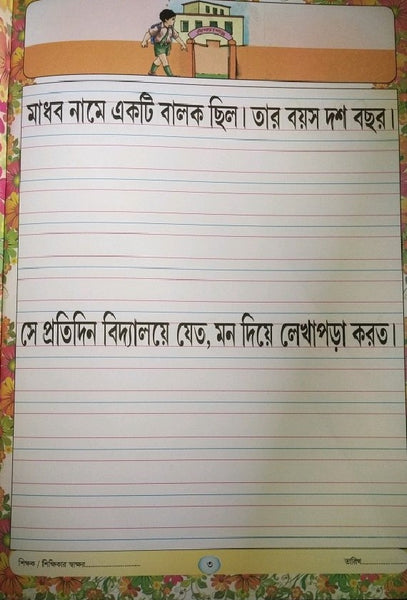 মাধব নামে একটি বালক ছিল। তার বয়স দশ বছর।
সে প্রতিদিন বিদ্যালয়ে যেত, মন দিয়ে লেখাপড়া করত।
শিক্ষক / শিক্ষিকার স্বাক্ষর
৩
তারিখ